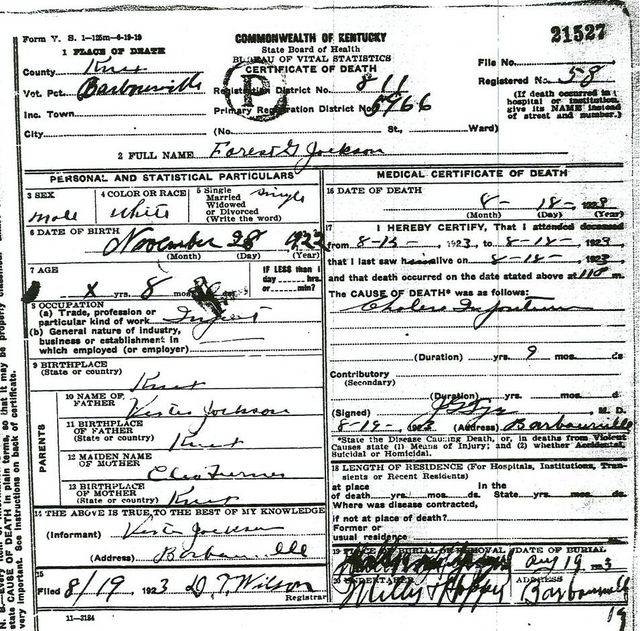 Form V. S. 1—125m—6-19-19
COMMONWEALTH OF KENTUCKY
State Board of Health
BUREAU OF VITAL STATISTICS
CERTIFICATE OF DEATH
21527
1 PLACE OF DEATH
County Knox
Vot. Pct. Barbourville
Inc. Town
City
P
Registration District No. 811
Primary Registration District No. 5966
(No. St., Ward)
File No.
Registered No. 58
(If death occurred in a
hospital or institution,
give its NAME instead
of street and number.)
2 FULL NAME Forest G Jackson
PERSONAL AND STATISTICAL PARTICULARS
3 SEX
Male
4 COLOR OR RACE
White
5 Single
Married
Widowed
or Divorced
(Write the word)
Single
6 DATE OF BIRTH
November 28 1922
(Month) (Day) (Year)
7 AGE
x yrs. 8 mos.
IF LESS than 1
day hrs.
or min?
8 OCCUPATION
(a) Trade, profession or
particular kind of work Infant
(b) General nature of industry,
business or establishment in
which employed (or employer)
9 BIRTHPLACE
(State or country)
Knox
PARENTS
10 NAME OF
FATHER
Vester Jackson
11 BIRTHPLACE
OF FATHER
(State or country)
Knox
12 MAIDEN NAME
OF MOTHER
Cleo Turner
13 BIRTHPLACE
OF MOTHER
(State or country)
Knox
14 THE ABOVE IS TRUE TO THE BEST OF MY KNOWLEDGE
(Informant) Vester Jackson
(Address) Barbourville
15
Filed 8/19 1923 D. T. Wilson
Registrar
11—3184
MEDICAL CERTIFICATE OF DEATH
16 DATE OF DEATH
8- 18- 1923
(Month) (Day) (Year)
17 I HEREBY CERTIFY, That I attended deceased
from 1923, to 1923,
that I last saw h alive on 1923,
and that death occurred on the date stated above at m.
The CAUSE OF DEATH* was as follows:
Cholera Infantum
(Duration) yrs. 9 mos. ds.
Contributory
(Secondary)
(Duration) yrs. mos. ds.
(Signed) M. D.
8-19- 1923 (Address) Barbourville
*State the Disease Causing Death, or, in deaths from Violent
Causes state (1) Means of Injury; and (2) whether Accidental,
Suicidal or Homicidal.
18 LENGTH OF RESIDENCE (For Hospitals, Institutions, Tran-
sients or Recent Residents)
at place In the
of death yrs. mos. ds. State yrs. mos. ds.
Where was disease contracted,
if not at place of death?
Former or
usual residence
19 PLACE OF BURIAL OR REMOVAL DATE OF BURIAL
Aug 19 1923
20 UNDERTAKER ADDRESS
Barbourville
19
N. B.—
state CAUSE OF DEATH in plain terms, so that it may be properly classified.
very important. See instructions on back of certificate.